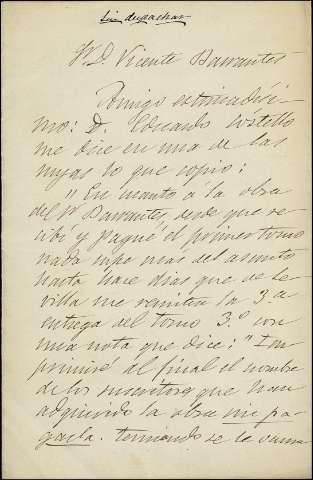 Sin despachar
Sr. D. Vicente Barrantes
Amigo estimadísi-
mo: D. Edo
me dice en una de las
suyas lo que copio:
"En cuanto á la obra
del Sr Barrantes, desde que re-
cibí y pagué el primer tomo
nada supe mas del asunto
hasta hace dias que de Se-
villa me remitía la 3.a
entrega del tomo 3.º con
una nota que dice: "Im-
primirá al final el nombre
de los suscritores que han
adquirido la obra sin pa-
garla. Terminando se le suma